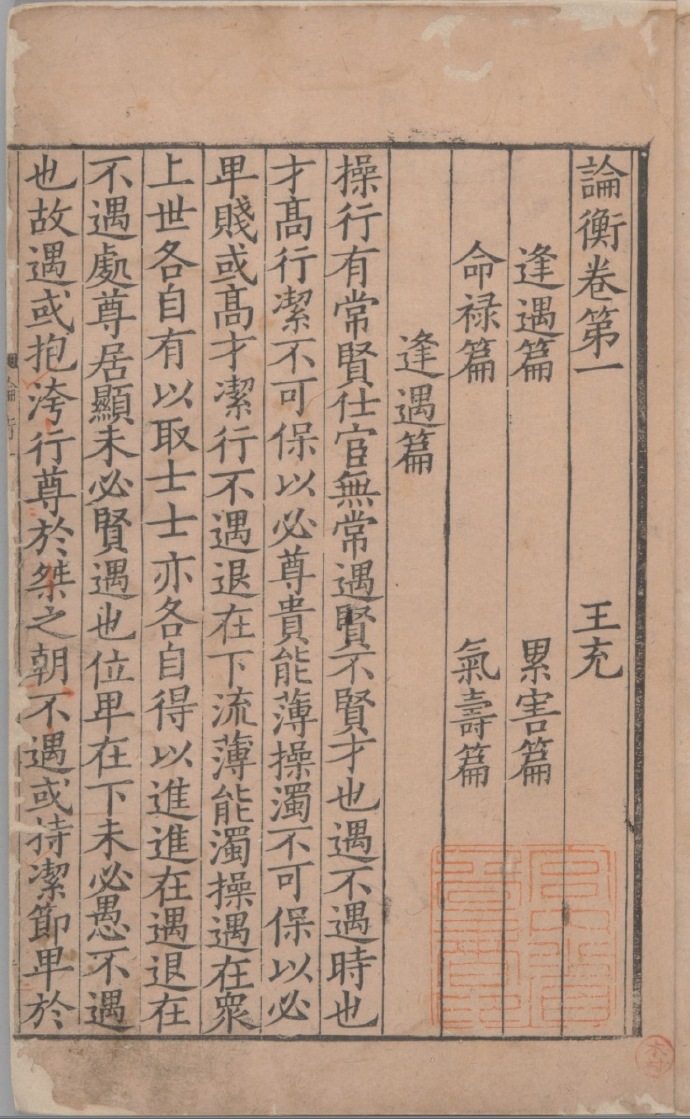 論衡卷第一 王充
逢遇篇 累害篇
命禄篇 氣壽篇
逢遇篇
操行有常賢仕宦無常遇賢不賢才也遇不遇時也
才髙行潔不可保以必尊貴能薄操濁不可保以必
卑賤或髙才潔行不遇退在下流薄能濁操遇在衆
上世各自有以取士士亦各自得以進進在遇退在
不遇處尊居顯未必賢遇也位卑在下未必愚不遇
也故遇或抱洿行尊於桀之朝不遇或持潔節卑於